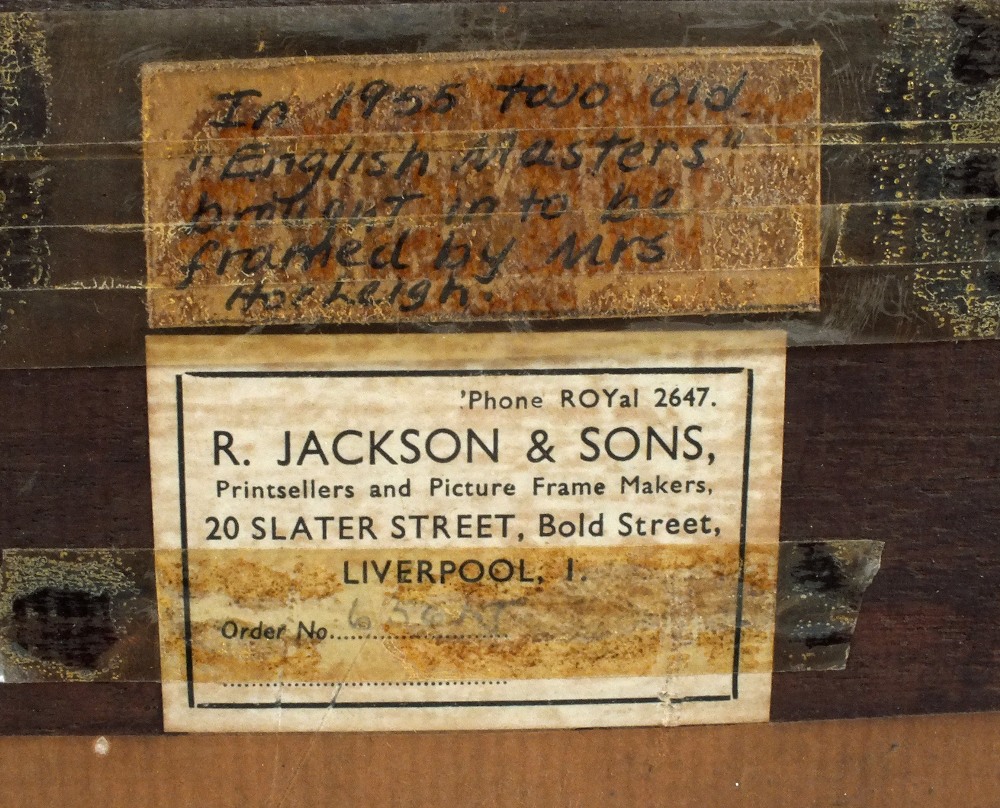 In 1955 two old
"English Masters"
brought in to be
framed by Mrs
Horleigh.
'Phone ROYal 2647.
R. JACKSON & SONS,
Printsellers and Picture Frame Makers,
20 SLATER STREET, Bold Street,
LIVERPOOL, 1.
Order No.